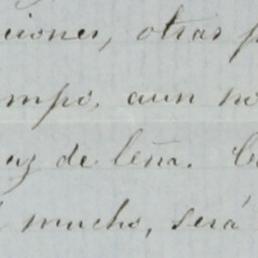 ciones, otras p
empo, aun no
az de leña.
mucho, será